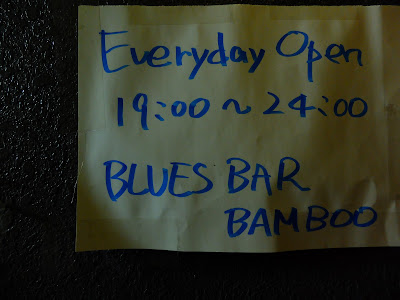 Everyday Open
19:00~24:00
BLUES BAR
BAMBOO